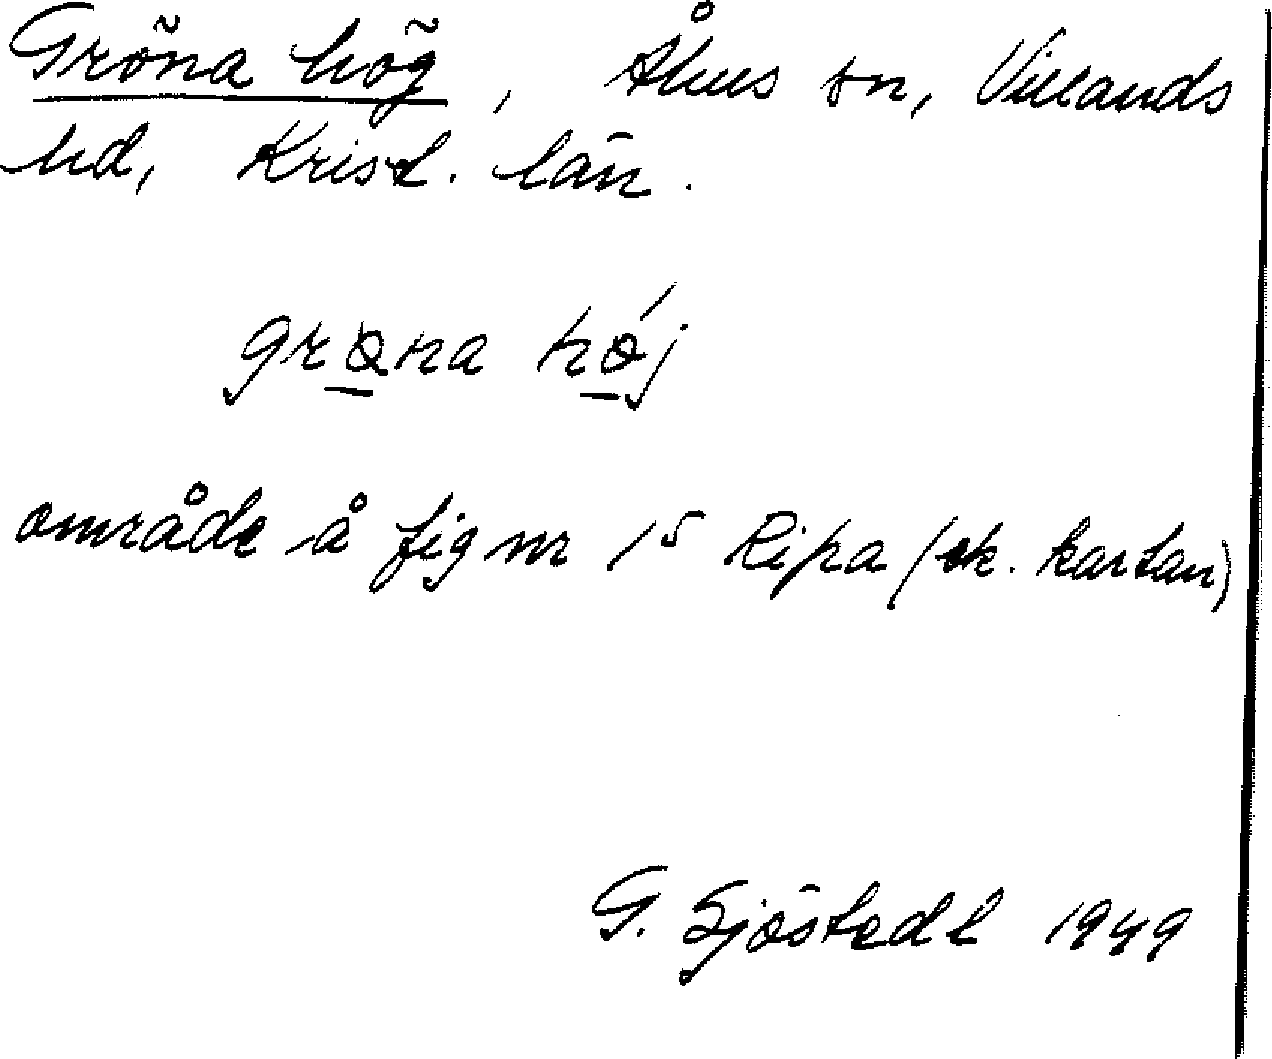 Gröna hög, Åhus sn, Villands
hd, Krist. län.
grøna høj
område å fig nr 15 Ripa (ek. kartan)
G. Sjöstedt 1949